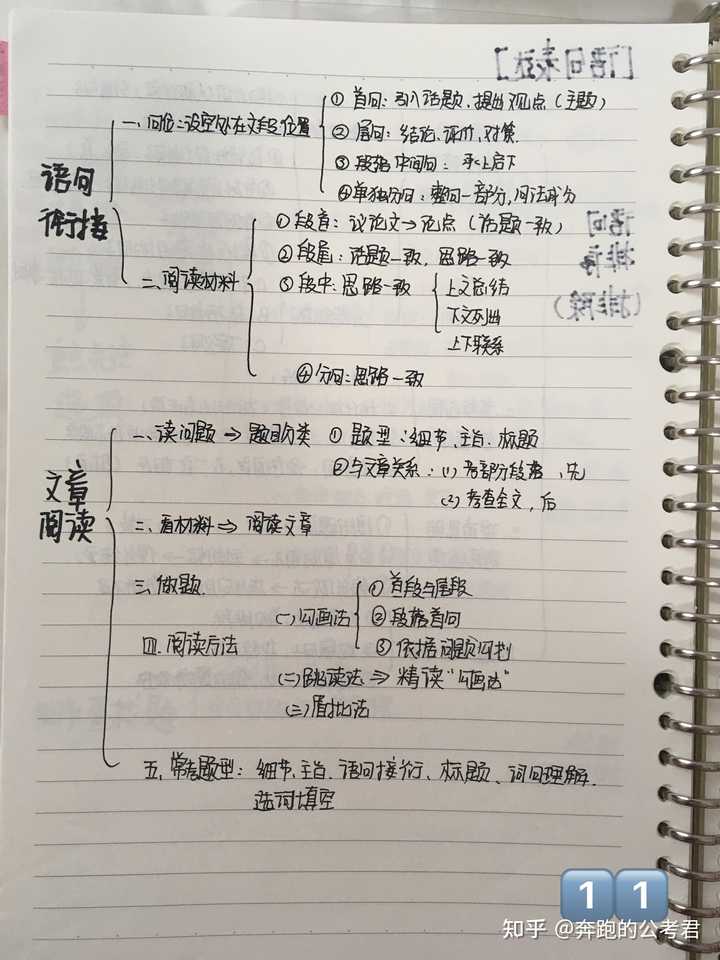 【语句表达】
语句
衔接
一、问位：设空处在文段位置
① 首句：引入话题、提出观点（主题）
② 尾句：结论、评价、对策.
③ 段落中间句：承上启下
④ 单独分句：整句一部分，句法成分
二、阅读材料
① 段首：议论文→论点（话题一致）
② 段尾：话题一致，思路一致
③ 段中：思路一致
上文总结
下文列出
上下联系
④ 分句：思路一致
语句
排序
（排除）
文章
阅读
一、读问题 ⇒ 题目分类 ① 题型：细节、主旨、标题
② 与文章关系：(1) 考部分段落，先
(2) 考查全文，后
二、看材料 ⇒ 阅读文章
三、做题.
四、阅读方法
(一) 勾画法
① 首段与尾段
② 段落首句
③ 依据问题勾划
(二) 跳读法 ⇒ 精读“勾画法”
(三) 眉批法
五、常考题型：细节、主旨、语句接衔、标题、词句理解、
选词填空
11
知乎 @奔跑的公考君